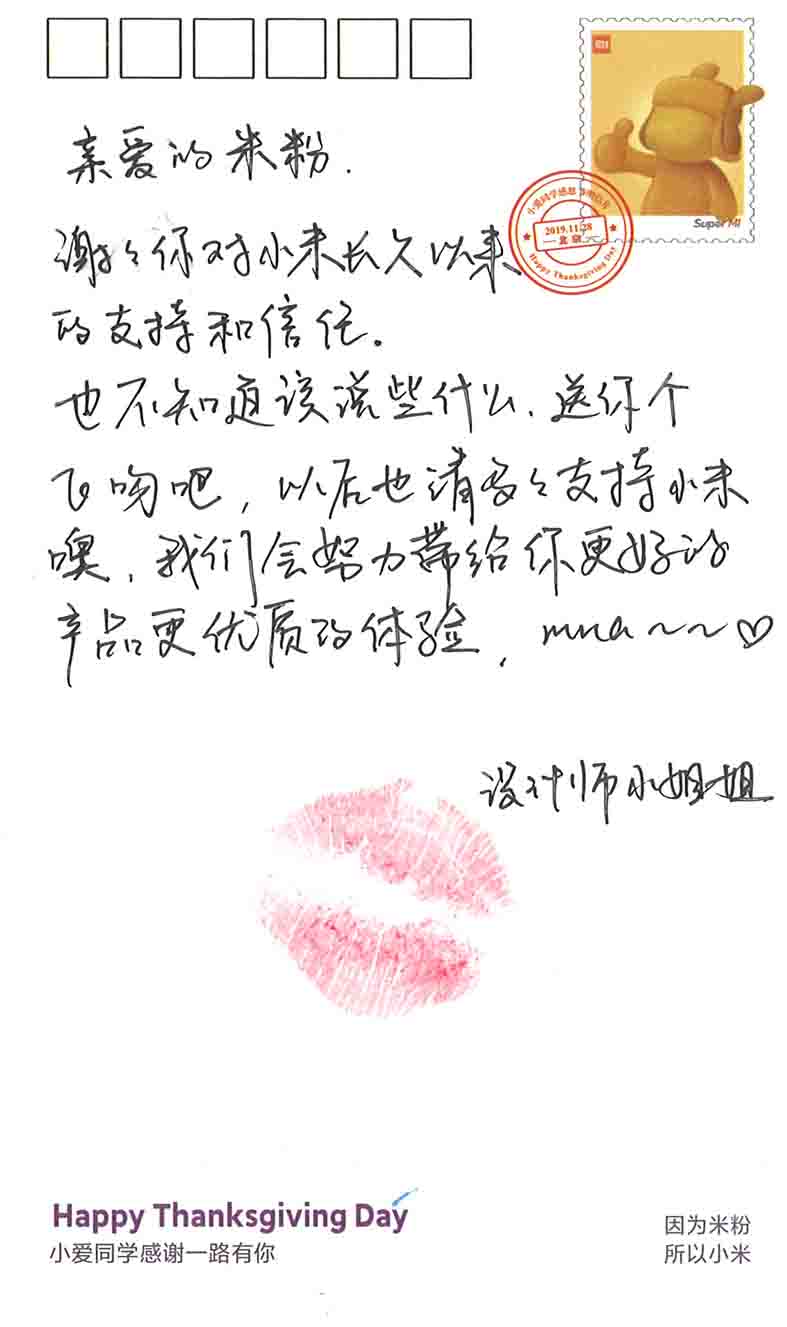 MI
Super MI
小爱同学感恩节明信片
2019.11.28
北京
Happy Thanksgiving Day
亲爱的米粉.
谢谢你对小米长久以来
的支持和信任。
也不知道该说些什么,送你个
飞吻吧,以后也请多多支持小米
噢,我们会努力带给你更好的
产品更优质的体验,mua~~♡
设计师小姐姐
Happy Thanksgiving Day
小爱同学感谢一路有你
因为米粉
所以小米